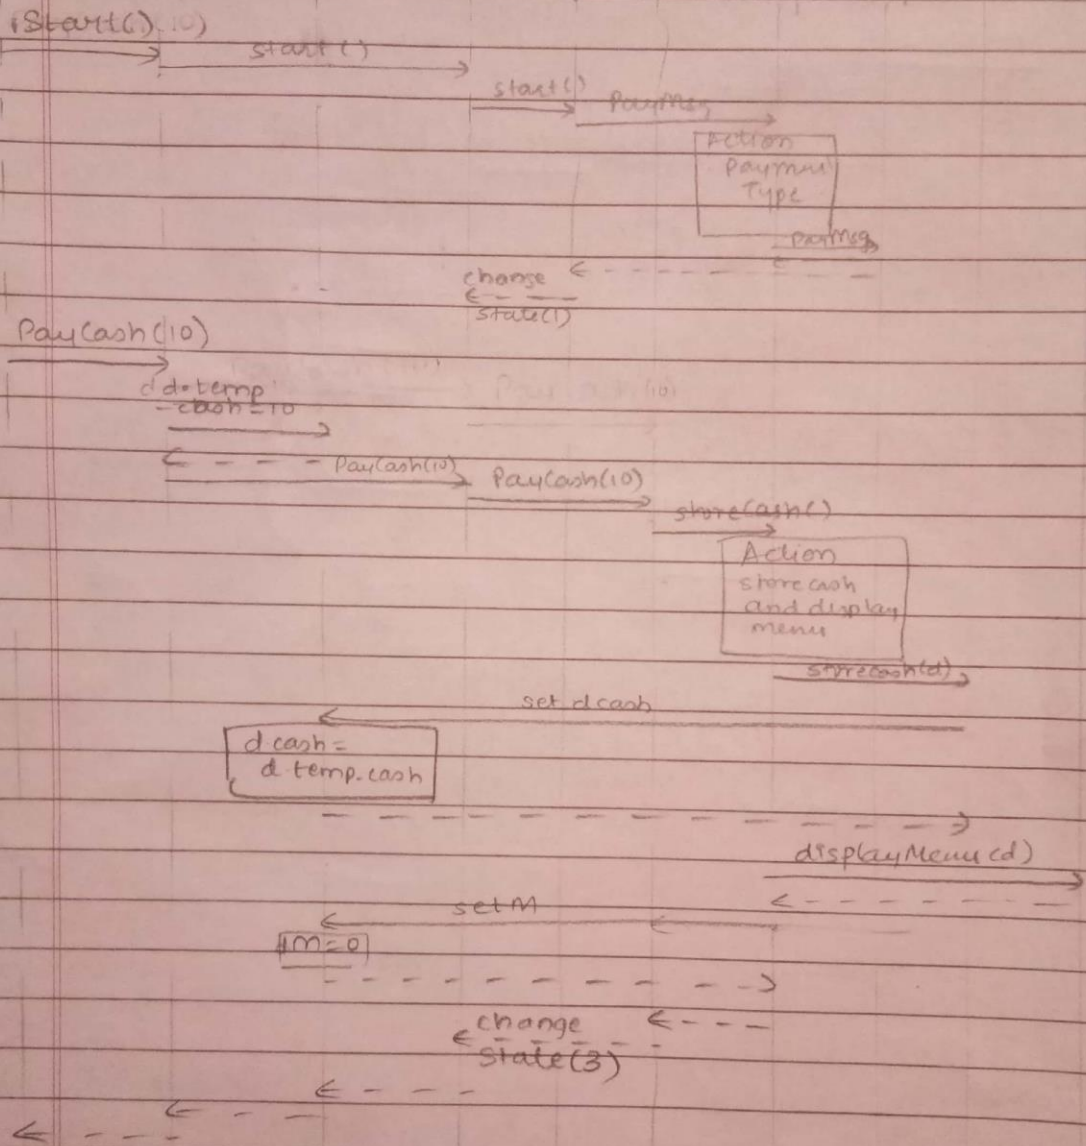 Start()
start()
start()
PayMsg
Action
Payment
Type
PayMsg
change
state(1)
PayCash(10)
d.temp
cash=10
PayCash(10)
PayCash(10)
storeCash()
Action
store cash
and display
menu
storecash(d)
set d cash
d cash =
d.temp.cash
displayMenu(d)
setM
M=0
change
State(3)